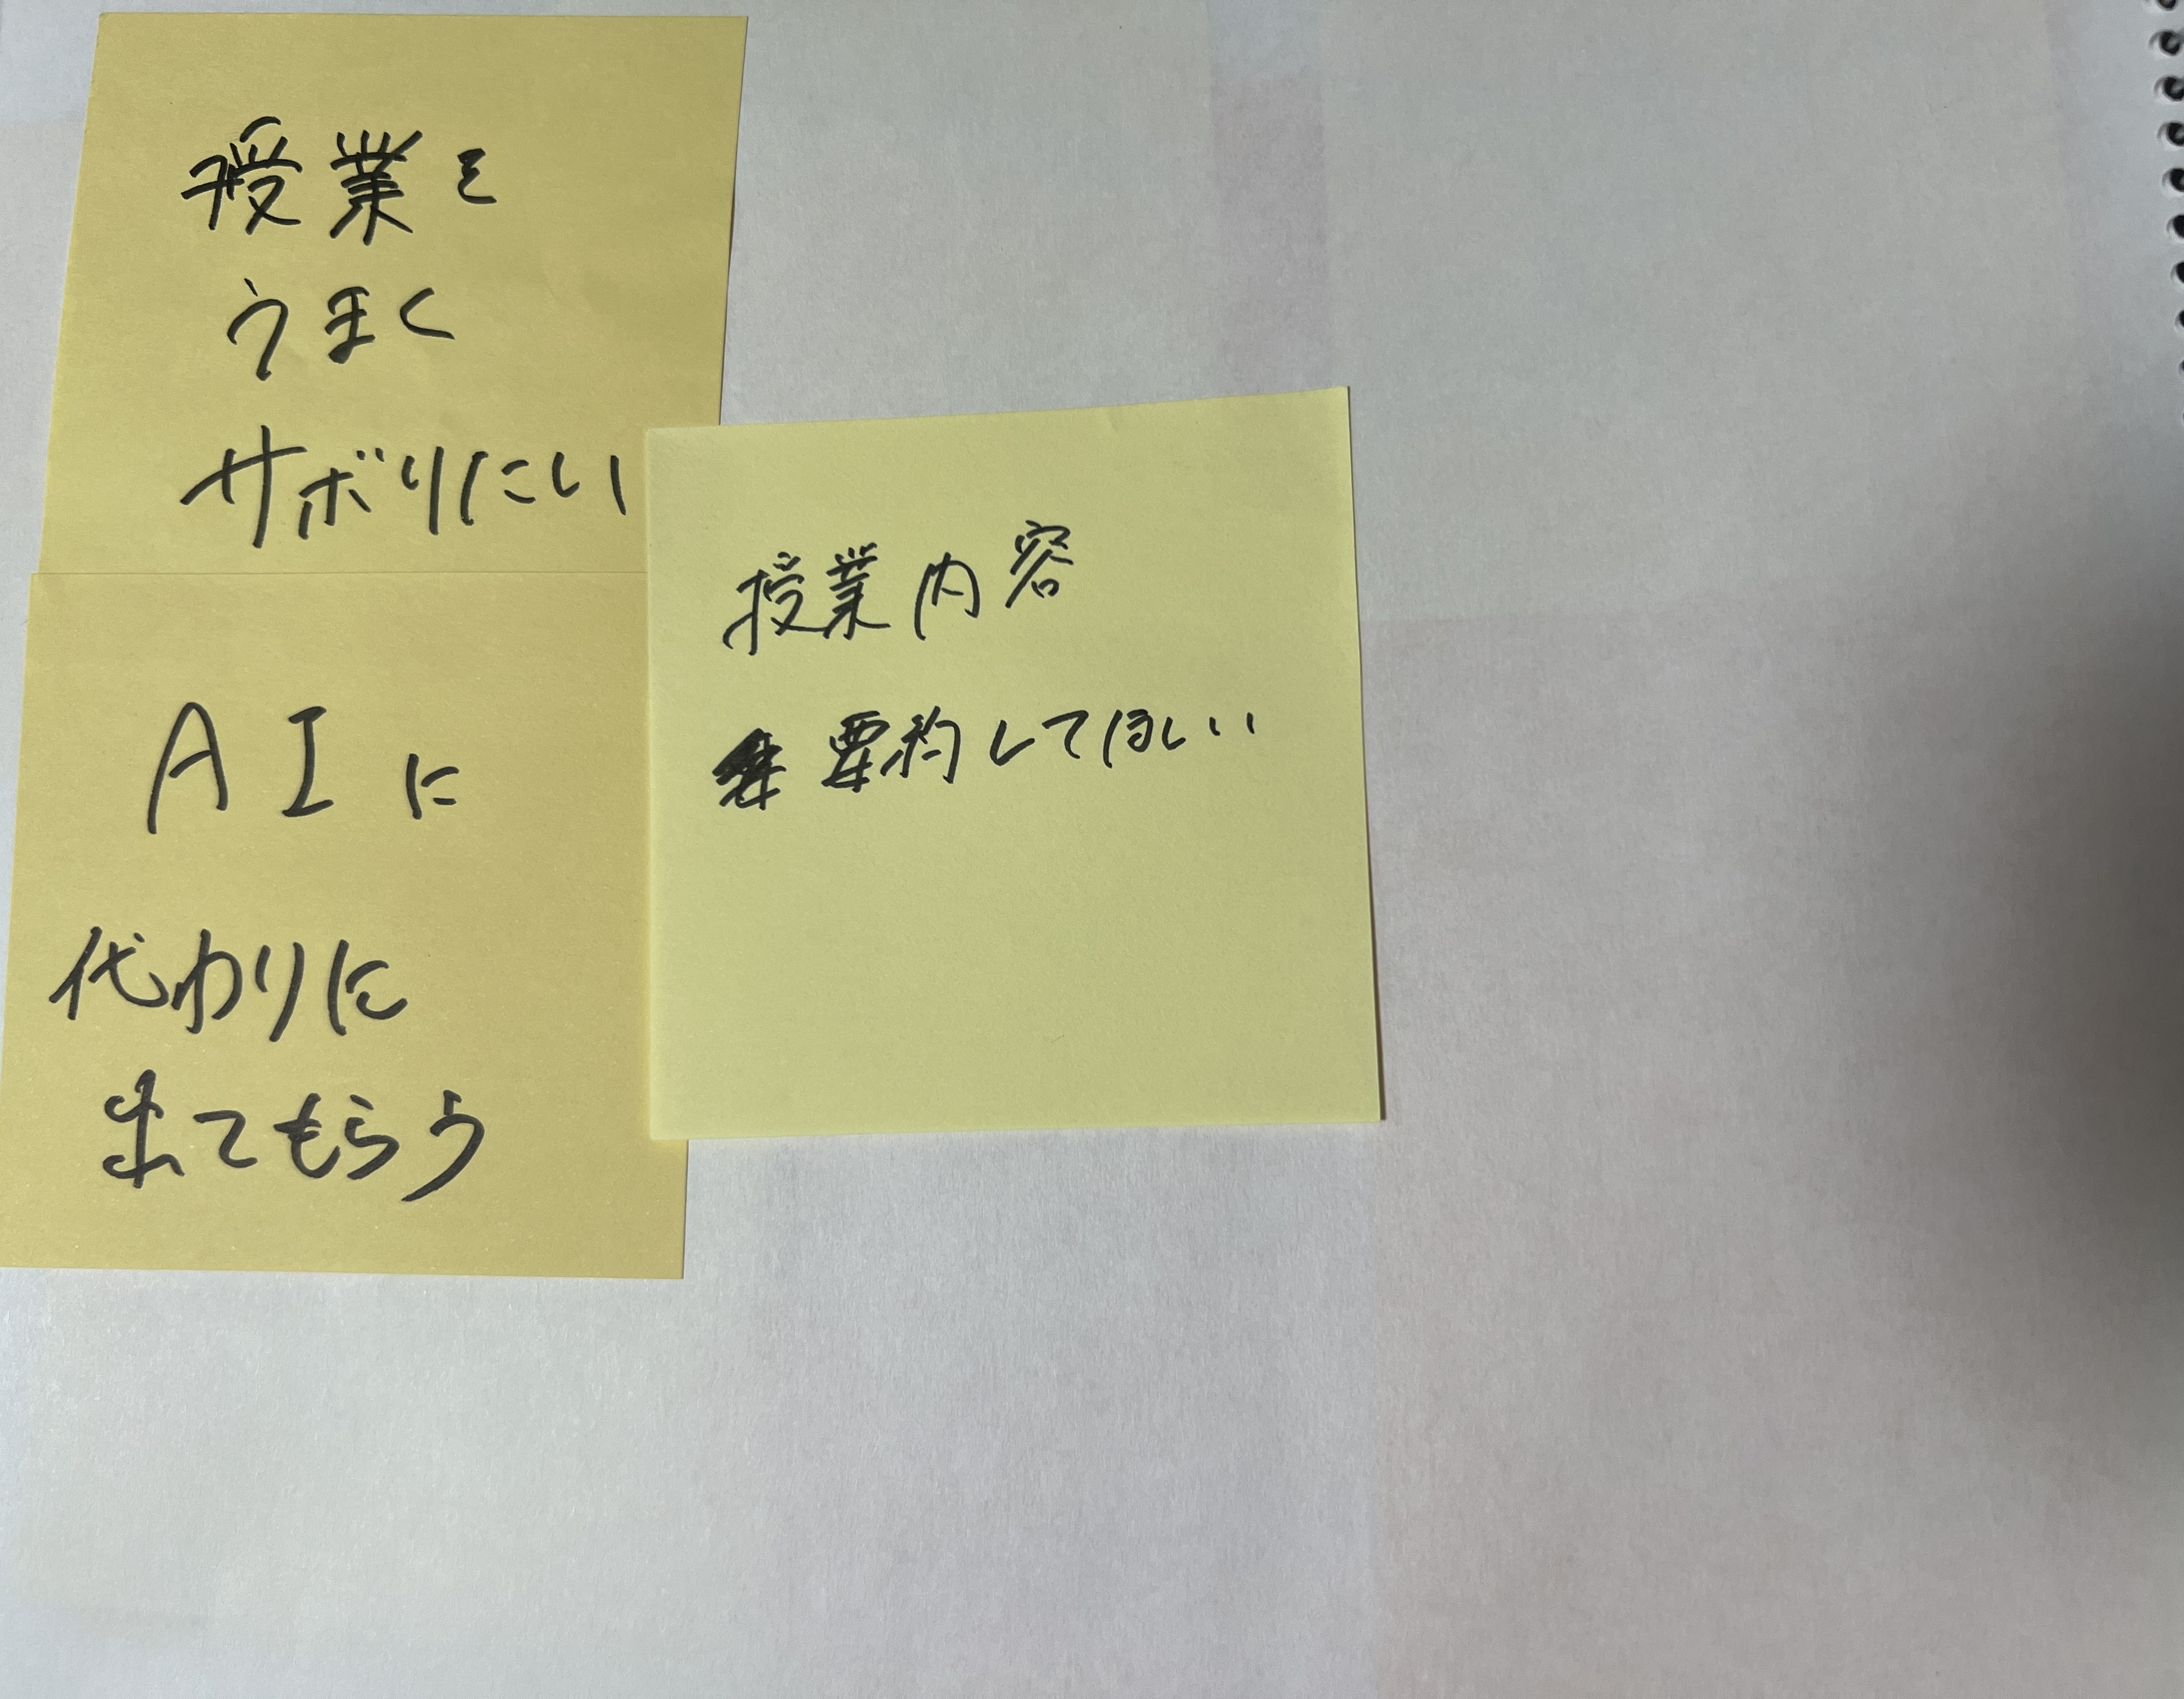 授業を
うまく
サボりたい
AIに
代わりに
出てもらう
授業内容
要約してほしい